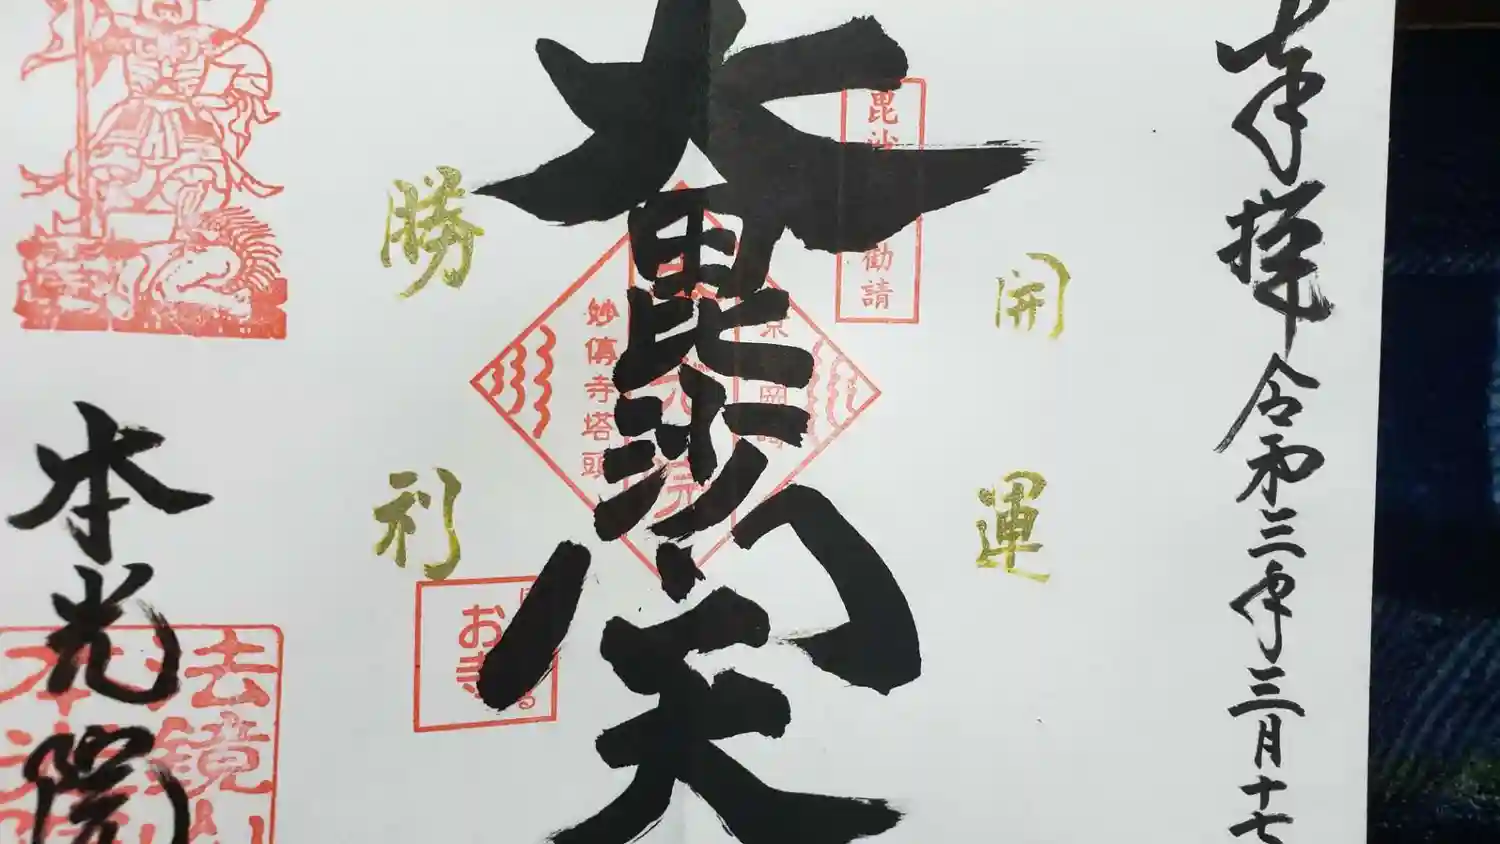 奉拝 令和三年三月十七
開運
毘沙
勧請
大毘沙門天
京岡崎
妙傳寺塔頭
勝利
お寺
本光院
法鏡山
本光院